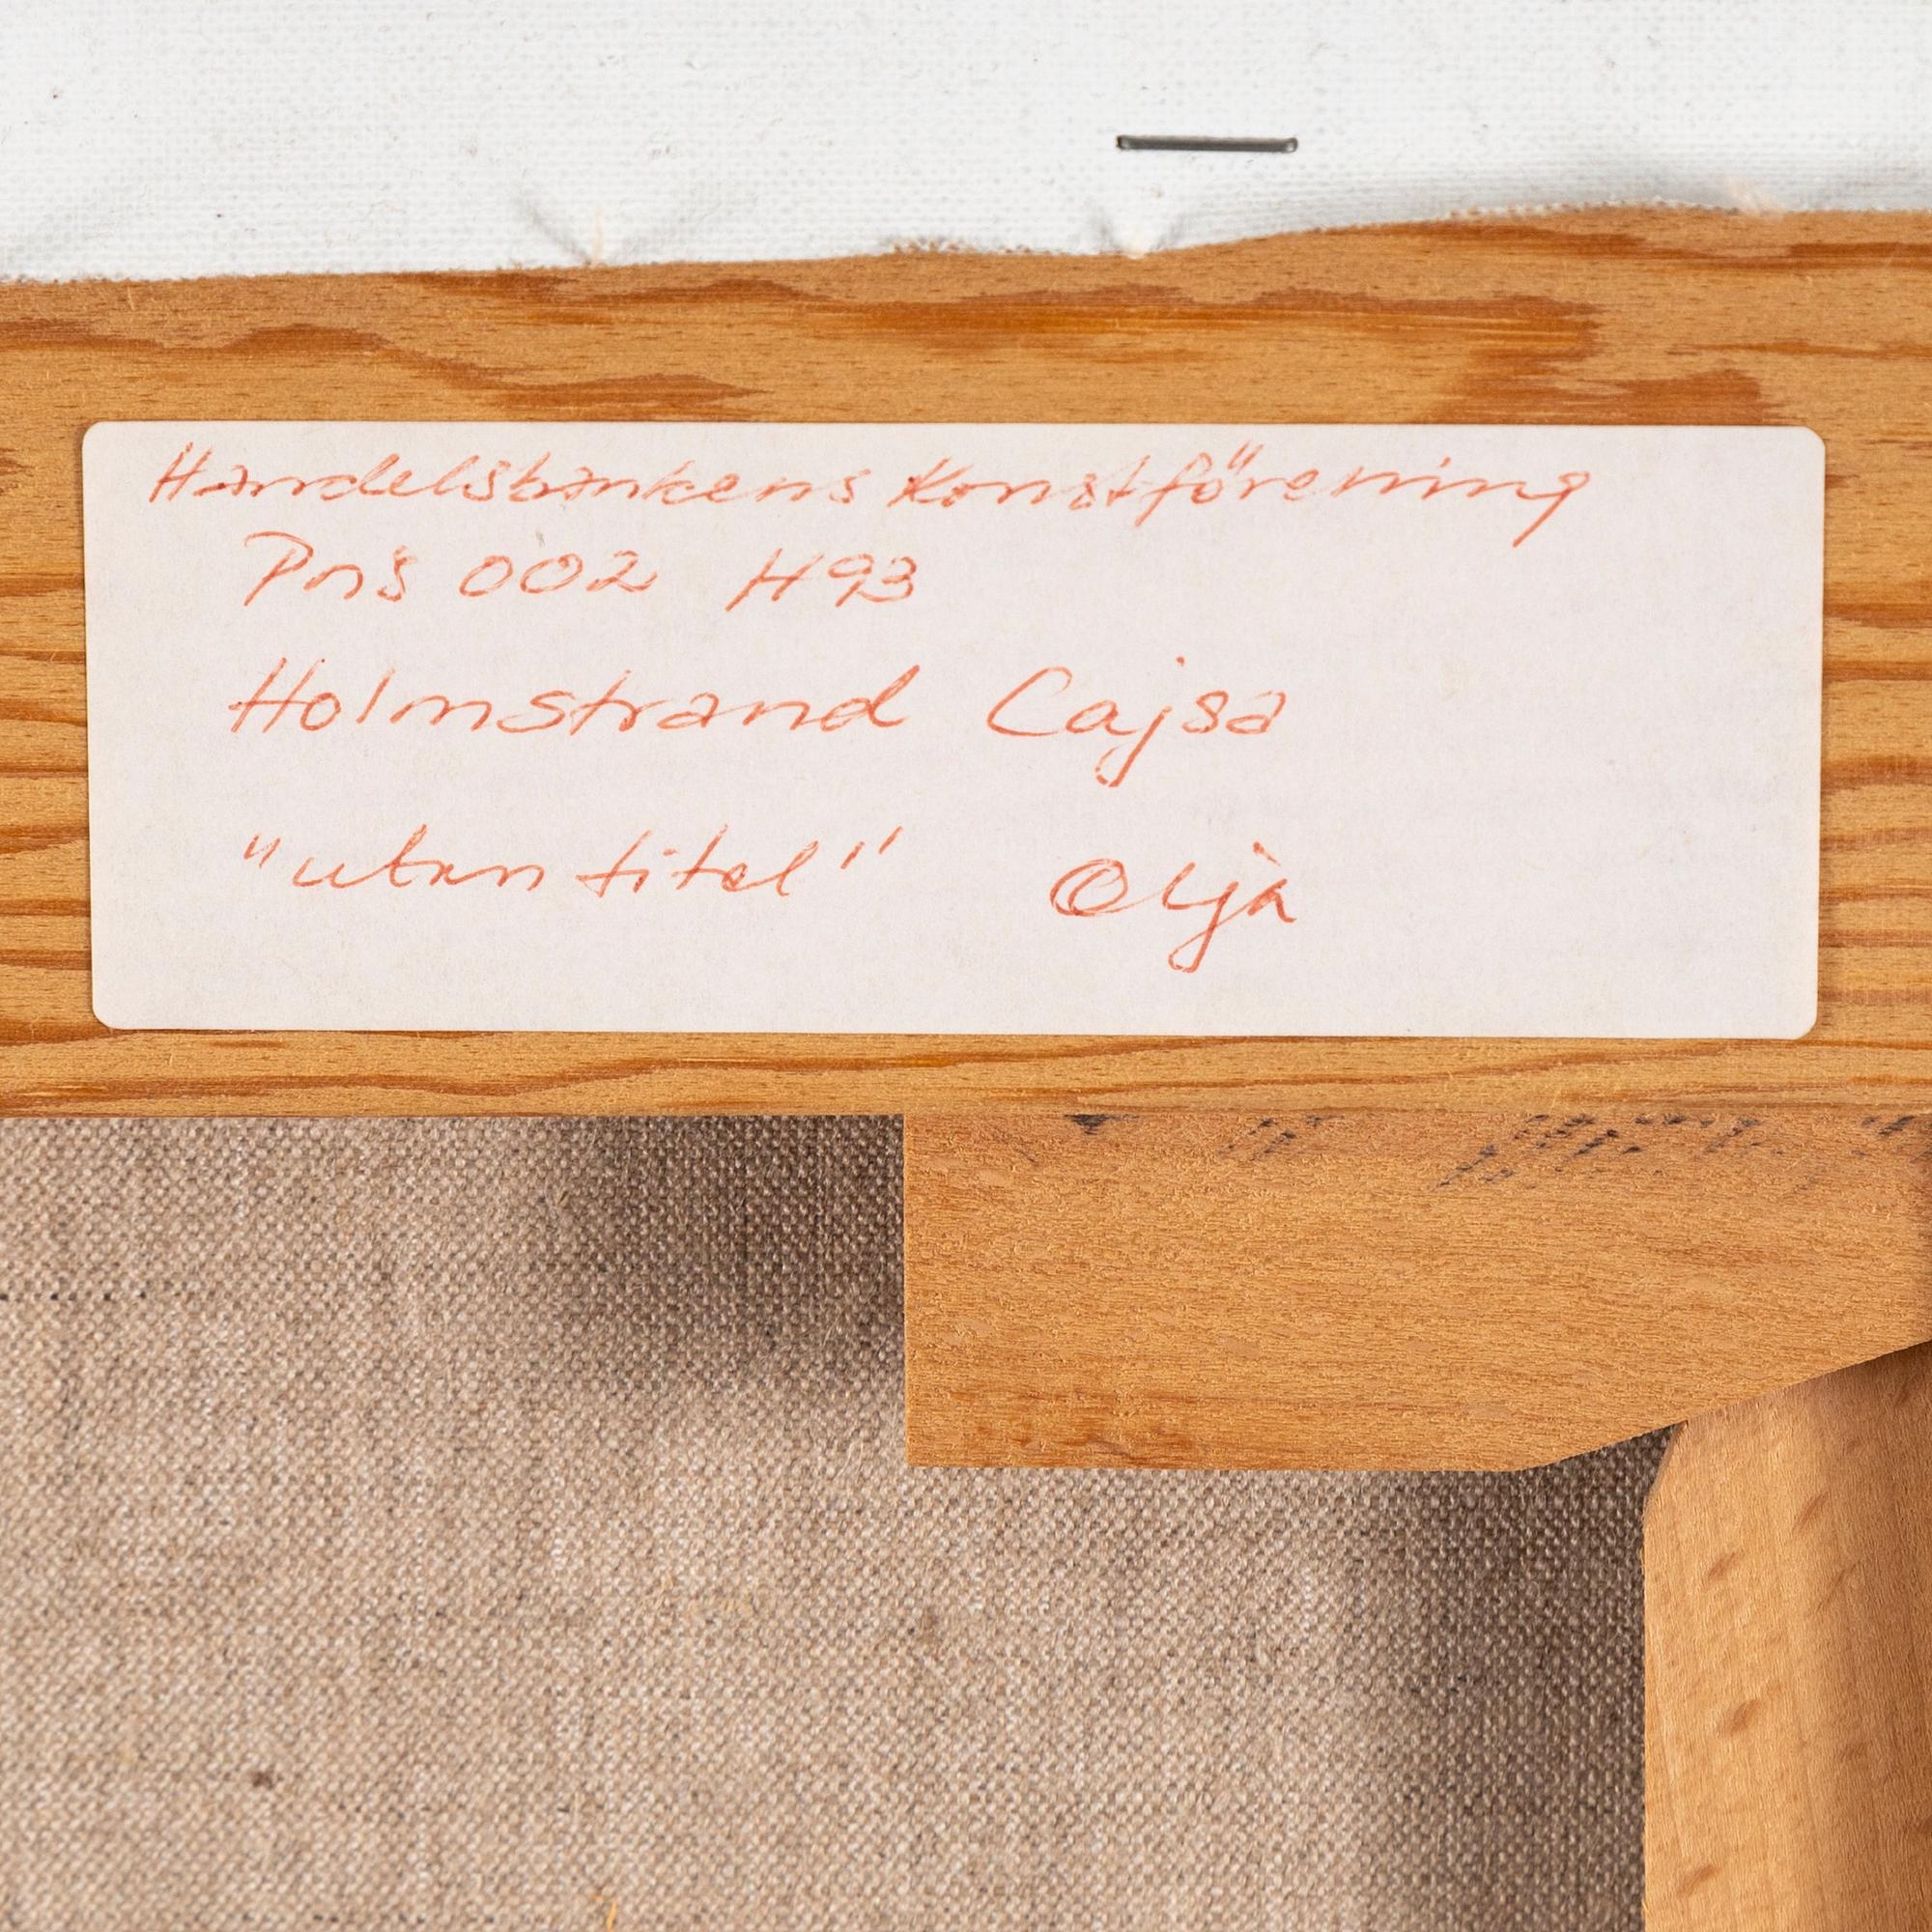 Handelsbankens Konstförening
Pris 002 H93
Holmstrand Cajsa
"utan titel" Olja